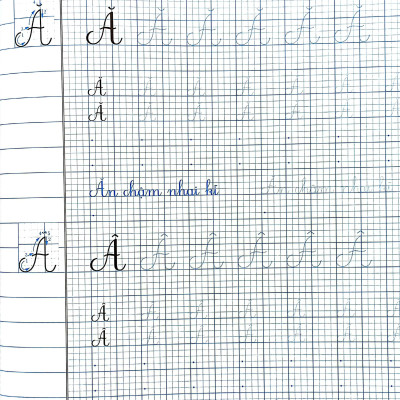 Ă Ă Ă Ă Ă Ă Ă
Ă Ă Ă Ă Ă Ă
Ă Ă Ă Ă Ă Ă
Ăn chậm nhai kĩ Ăn chậm nhai kĩ
Â Â Â Â Â Â Â
Â Â Â Â Â Â
Â Â Â Â Â Â